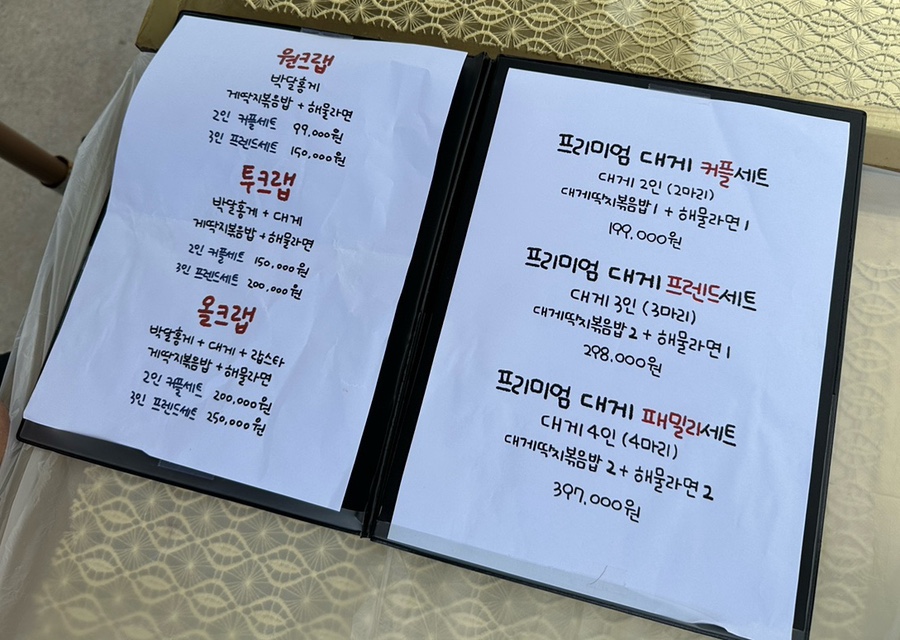 원크랩
박달홍게
게딱지볶음밥 + 해물라면
2인 커플세트 99,000원
3인 프렌드세트 150,000원
투크랩
박달홍게 + 대게
게딱지볶음밥 + 해물라면
2인 커플세트 150,000원
3인 프렌드세트 200,000원
올크랩
박달홍게 + 대게 + 랍스타
게딱지볶음밥 + 해물라면
2인 커플세트 200,000원
3인 프렌드세트 250,000원
프리미엄 대게 커플세트
대게 2인 (2마리)
대게딱지볶음밥 1 + 해물라면 1
199,000원
프리미엄 대게 프렌드세트
대게 3인 (3마리)
대게딱지볶음밥 2 + 해물라면 1
298,000원
프리미엄 대게 패밀리세트
대게 4인 (4마리)
대게딱지볶음밥 2 + 해물라면 2
397,000원